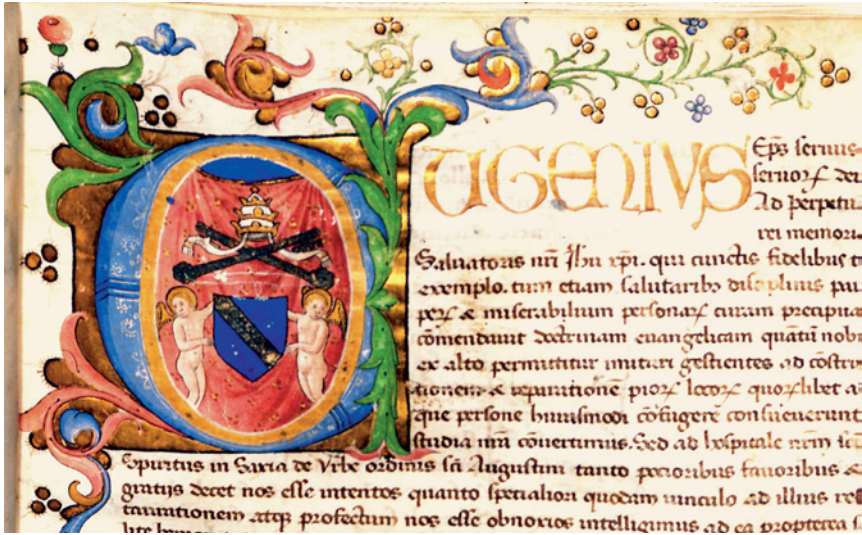 EUGENIVS Ep̄s seruus
seruoꝝ dei
Ad perpetu
rei memori
Saluatoris nr̄i Jh̄u xp̄i. qui cunctis fidelibus
exemplo. tum etiam salutaribꝰ disciplinis pau
perꝝ & miserabilium personaꝝ curam precipua
comendauit doctrinam euangelicam quātū nobi
ex alto permittitur imitari gestientes ad cōstru
ctionem & reparationē pioꝝ locoꝝ quoꝝlibet a
que persone huiusmodi cōfugere consueuerunt
studia nr̄a cōuertimus. Sed ad hospitale nr̄m
Spiritus in Saxia de Vrbe ordinis sc̄i Augustini tanto potioribus fauoribus &
gratijs decet nos esse intentos quanto speciáliori quodam uinculo ad illius re
taurationem atqꝫ profectum nos esse obnoxios intelligimus ad ea propterea